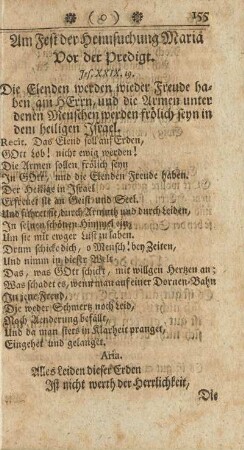 155
Am Fest der Heimsuchung Mariä
Vor der Predigt.
Jes. XXIX. 19.
Die Elenden werden wieder Freude ha-
ben am HErrn, und die Armen unter
denen Menschen werden frölich seyn in
dem heiligen Israel.
Recit. Das Elend soll auf Erden,
GOtt Lob! nicht ewig werden!
Die Armen sollen frölich seyn
In GOtt, und die Elenden Freude haben.
Der Heilige in Israel
Erfreuet sie an Geist und Seel.
Und führet sie, durch Armuth und durch Leiden,
In seinen schönen Himmel ein,
Um sie mit ewger Lust zu laben.
Drum schicke dich, o Mensch! bey Zeiten,
Und nimm in dieser Welt
Das, was GOtt schickt, mit willgen Hertzen an;
Was schadet es, wenn man auf einer Dornen-Bahn
In jene Freud,
Die weder Schmertz noch Leid,
Noch Aenderung befällt,
Und da man stets in Klarheit pranget,
Eingehet und gelanget.
Aria.
Alles Leiden dieser Erden
Ist nicht werth der Herrlichkeit,
Die